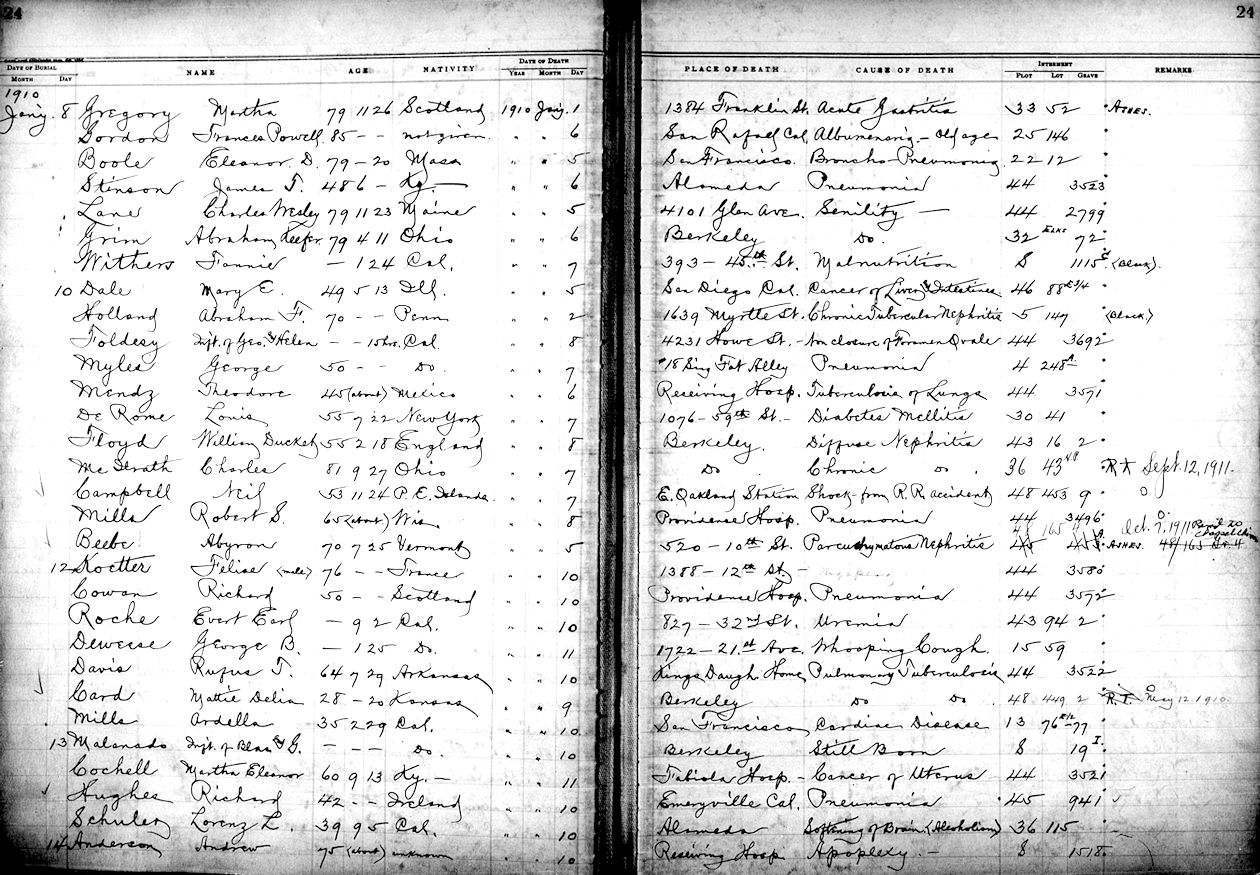 24
24
DATE OF BURIAL NAME AGE NATIVITY DATE OF DEATH PLACE OF DEATH CAUSE OF DEATH INTERMENT REMARKS
MONTH DAY YEAR MONTH DAY PLOT LOT GRAVE
1910
Jany. 8 Gregory Martha 79 11 26 Scotland 1910 Jany. 1 1384 Franklin St. Acute Gastritis 33 52 ASHES.
Gordon Frances Powell 85 - - not given " " 6 San Rafael Cal. - Old age 25 146
Boole Eleanor D. 79 - 20 Mass " " 5 San Francisco. Broncho-Pneumonia 22 12
Stinson James T. 48 6 - Ky. " " 6 Alameda Pneumonia 44 3523
Lane Charles Wesley 79 11 23 Maine " " 5 4101 Glen Ave. Senility 44 2799
Grim Abraham Keefer 79 4 11 Ohio " " 6 Berkeley Do. 32 ELKS 72
Withers Fannie - 1 24 Cal. " " 7 393 - 45th St. Malnutrition 8 1115 E (Black).
10 Dale Mary E. 49 5 13 Ill. " " 5 San Diego Cal. Cancer of Liver & Intestines 46 88 E 3/4
Holland Abraham F. 70 - - Penn " " 2 1639 Myrtle St. Chronic Tubercular Nephritis 5 147 (Black.)
Foldesy Inft. of Geo. & Helen - - 15 hrs. Cal. " " 8 4231 Howe St. - Non closure of Foramen Ovale 44 3692
Myles George 50 - - Do. " " 7 18 Sing Fat Alley Pneumonia 4 248 A
Mendz Theodore 45 (about) Mexico " " 6 Receiving Hosp. Tuberculosis of Lungs 44 3571
De Rome Louis 55 7 22 New York " " 7 1076 - 59th St. - Diabetes Mellitis 30 41
Floyd William Ducket 55 2 18 England " " 8 Berkeley. Diffuse Nephritis 43 16 2
McGrath Charles 81 9 27 Ohio " " 7 Do Chronic Do. 36 43 R.T. Sept. 12, 1911.
Campbell Neil 53 11 24 P.E. Islands " " 7 E. Oakland Station Shock from R.R. accident 48 453 9
Mills Robert S. 65 (about) Wis " " 8 Providence Hosp. Pneumonia 44 3496
48 165 Oct. 7. 1911
Beebe Abyron 70 7 25 Vermont " " 5 520 - 10th St. Parenchymatous Nephritis 45 453 ASHES. 48/165 Gr. 4
12 Roetter Felise (male) 76 - - France " " 10 1388 - 12th St. 44 3580
Cowan Richard 50 - - Scotland " " 10 Providence Hosp. Pneumonia 44 3572
Roche Evert Earl - 9 2 Cal. " " 10 829 - 32nd St. Uremia 43 94 2
Deweese George B. - 1 25 Do. " " 11 1722 - 21st Ave. Whooping Cough. 15 59
Davis Rufus T. 64 7 29 Arkansas " " 10 Kings Daugh. Home Pulmonary Tuberculosis 44 3522
Card Mattie Delia 28 - 20 Kansas " " 9 Berkeley Do Do. 48 449 2 R.T. May 12 1910.
Mills Ardella 35 2 29 Cal. " " 10 San Francisco Cardiac Disease 13 76 77
13 Malanado Inft. of Blas & G. - - - Do " " 10 Berkeley Still Born 8 19 I.
Cochell Martha Eleanor 60 9 13 Ky. - " " 11 Fabiola Hosp. - Cancer of Uterus 44 3521
Hughes Richard 42 - - Ireland " " 10 Emeryville Cal. Pneumonia 45 941
Schuler Lorenz L. 39 9 5 Cal. " " 10 Alameda Softening of Brain (Alcoholism) 36 115
14 Anderson Andrew 75 (about) unknown " " 10 Receiving Hosp. Apoplexy. - 8 1518